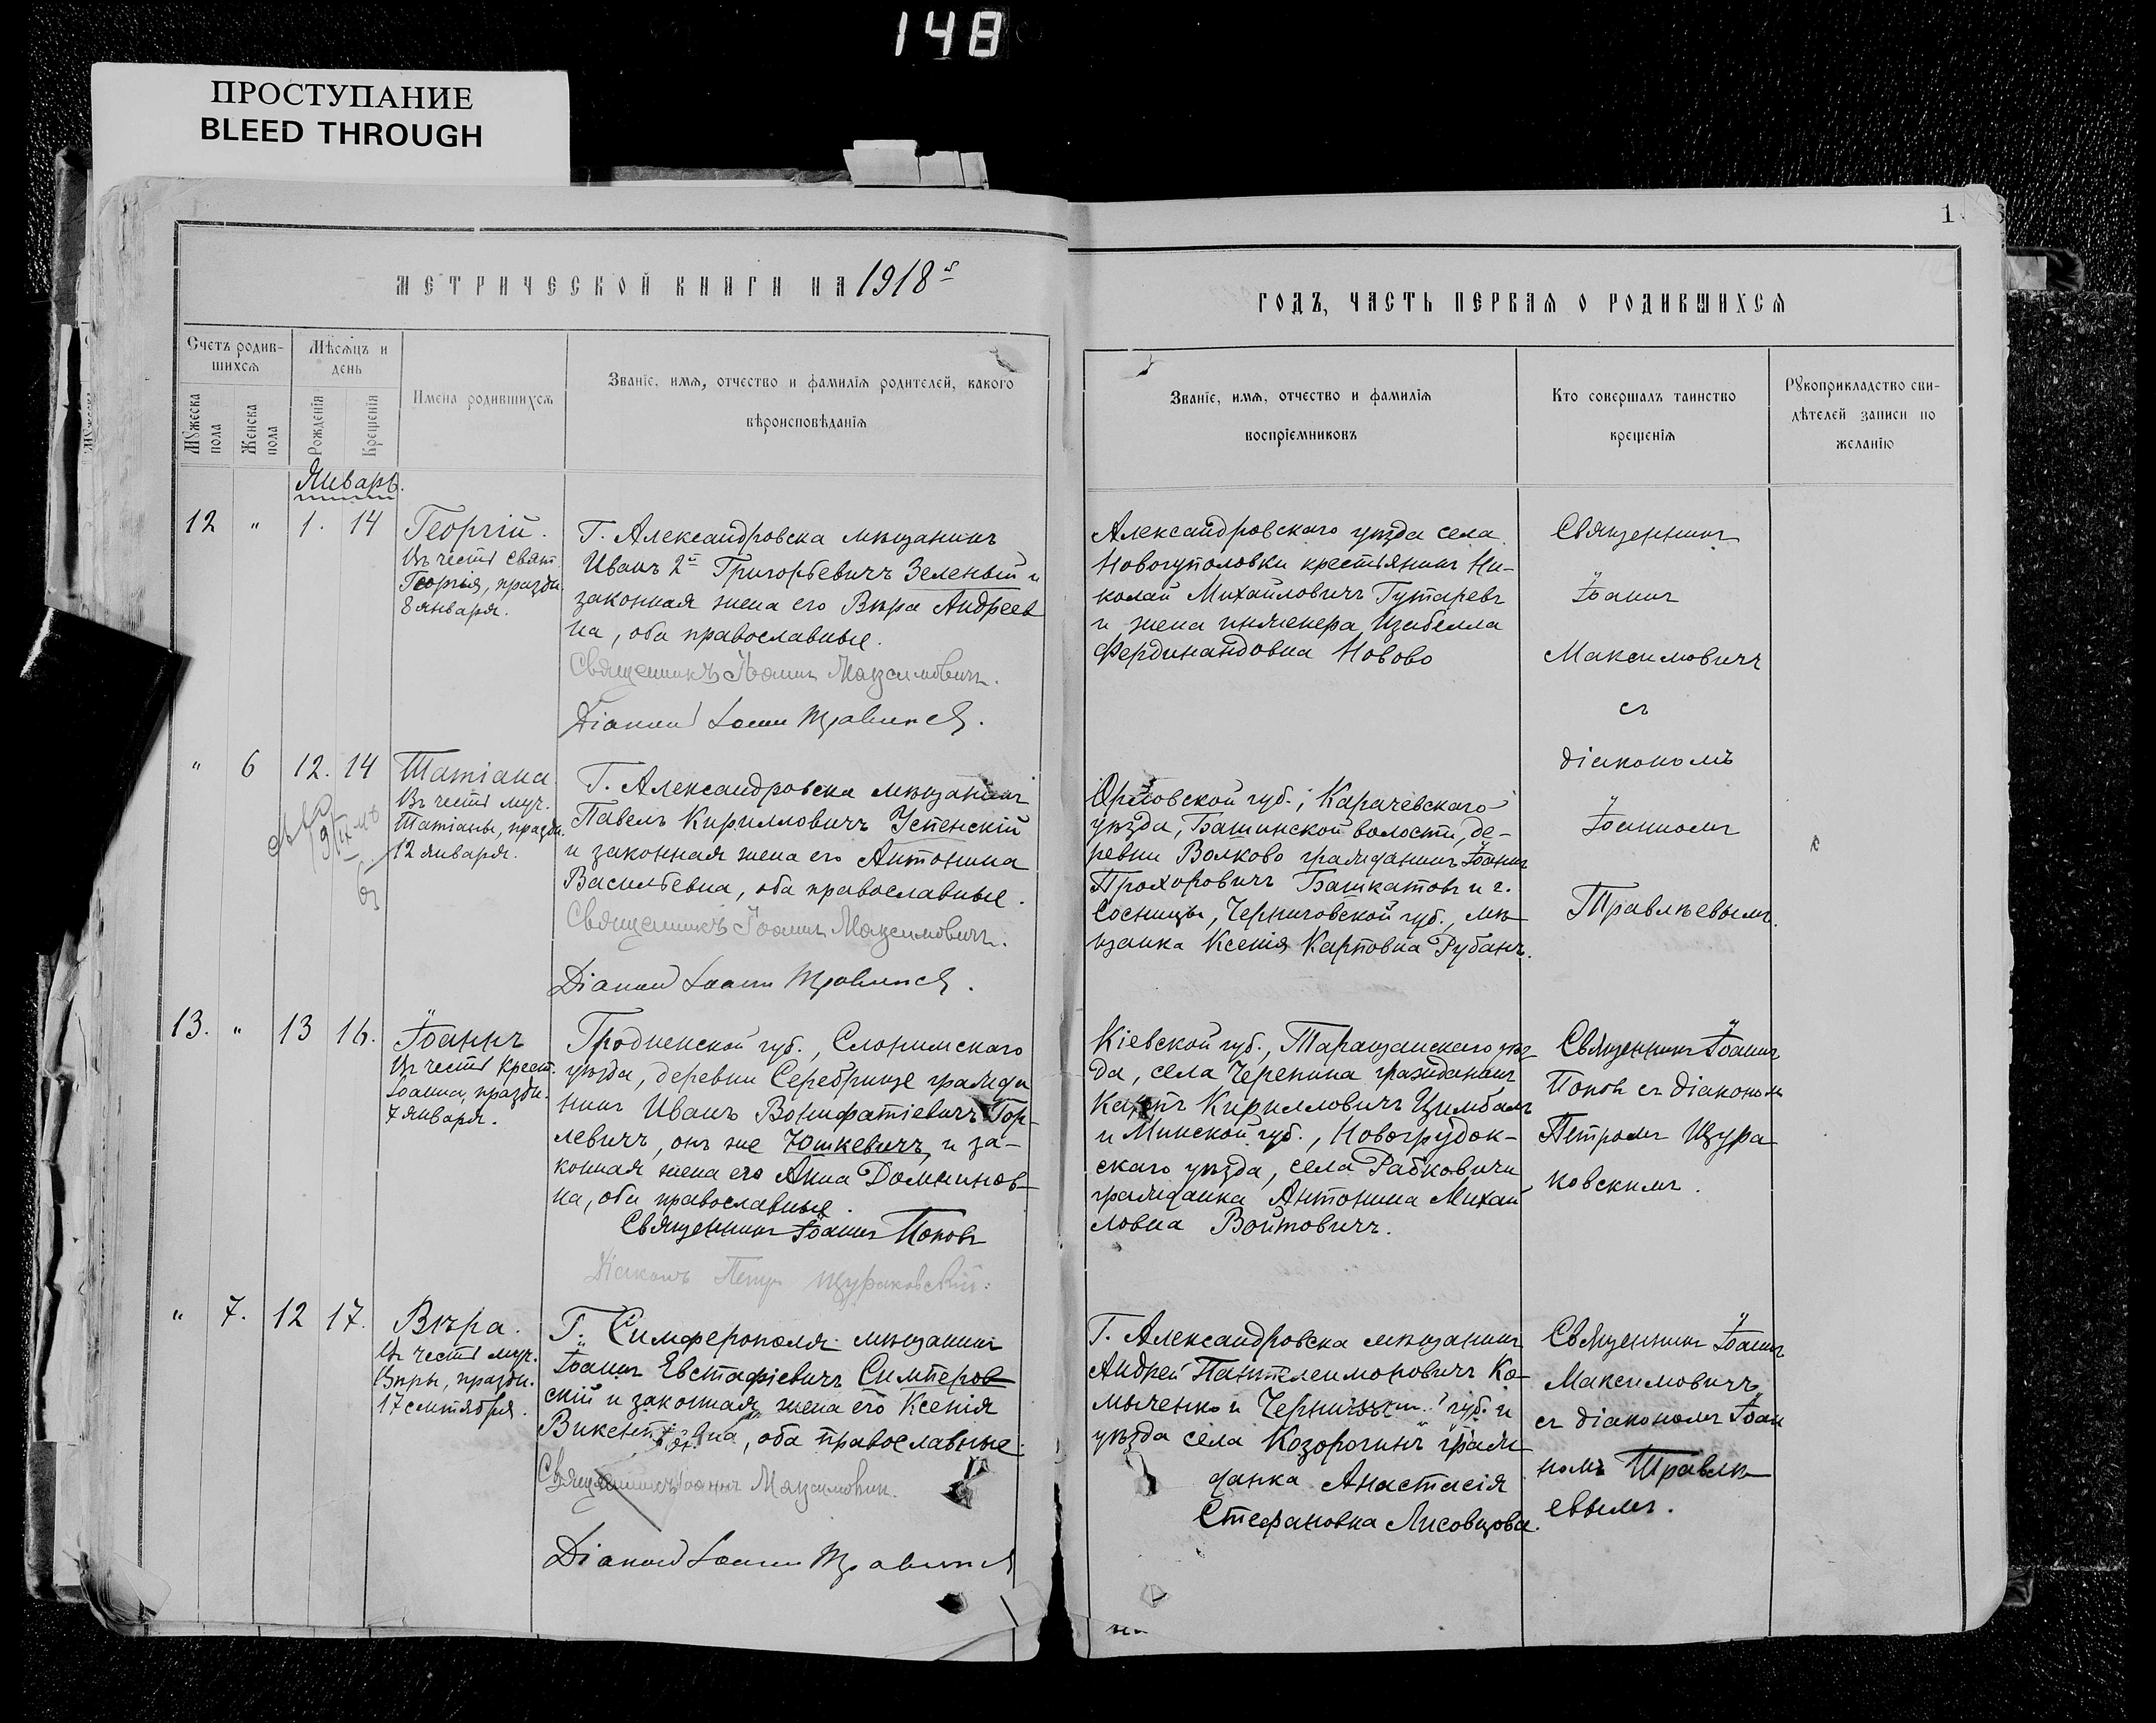 148
ПРОСТУПАНИЕ
BLEED THROUGH
МЕТРИЧЕСКОЙ КНИГИ НА 1918
ГОДЪ, ЧАСТЬ ПЕРВАЯ О РОДИВШИХСЯ
Счетъ родив-
шихся
Мужеска
пола
Женска
пола
Мѣсяцъ и
день
Рожденія
Крещенія
Имена родившихся
Званіе, имя, отчество и фамилія родителей, какого
вѣроисповѣданія
Званіе, имя, отчество и фамилія
воспріемниковъ
Кто совершалъ таинство
крещенія
Рукоприкладство сви-
дѣтелей записи по
желанію
Январь.
12 " 1. 14
Георгій.
Въ честь свят.
Георгія, праздн.
8 января.
Г. Александровска мѣщанинъ
Иванъ 2й Григорьевичъ Зеленый и
законная жена его Вѣра Андреев
на, оба православные.
Священникъ Іоаннъ Максимовичъ.
Діаконъ Іоаннъ
Александровскаго уѣзда села
Новогуполовки крестьянинъ Ни-
колай Михайловичъ Гутаревъ
и жена инженера Изабелла
Фердинандовна Новово
Священникъ
Іоаннъ
Максимовичъ
съ
діакономъ
Іоанномъ
Травлѣевымъ.
" 6 12. 14
Татіана
Въ честь муч.
Татіаны, праздн.
12 января.
Г. Александровска мѣщанинъ
Павелъ Кирилловичъ Успенскій
и законная жена его Антонина
Васильевна, оба православные.
Священникъ Іоаннъ Максимовичъ.
Діаконъ Іоаннъ
Орловской губ., Карачевскаго
уѣзда, Башинской волости, де-
ревни Волково гражданинъ Іоаннъ
Прохоровичъ Башкатовъ и г.
Сосницы, Черниговской губ., мѣ-
щанка Ксенія Карповна Рубанъ.
13. " 13 16.
Іоаннъ
Въ честь Крест.
Іоанна, праздн.
7 января.
Гродненской губ., Слонимскаго
уѣзда, деревни Серебрище гражда
нинъ Иванъ Вонифатіевичъ Гор-
левичъ, онъ же Юшкевичъ, и за-
конная жена его Анна Домнинов-
на, оба православные.
Священникъ Іоаннъ Поповъ
Діаконъ Петръ Щураковскій.
Кіевской губ., Таращанскаго уѣз-
да, села Черепина гражданинъ
Кирилловичъ Цимбалъ
и Минской губ., Новогрудок-
скаго уѣзда, села Рабковичи
гражданка Антонина Михай
ловна Войтовичъ.
Священникъ Іоаннъ
Поповъ съ діакономъ
Петромъ Щура
ковскимъ.
" 7. 12 17.
Вѣра.
Въ честь муч.
Вѣры, праздн.
17 сентября.
Г. Симферополя мѣщанинъ
Іоаннъ Евстафіевичъ Симперов
скій и законная жена его Ксенія
оба православные.
Священникъ Іоаннъ Максимовичъ.
Діаконъ Іоаннъ
Г. Александровска мѣщанинъ
Андрей Пантелеимоновичъ Ко-
мыченко и губ. и
уѣзда села Козорогинъ граж-
данка Анастасія
Стефановна Лисовцова.
Священникъ Іоаннъ
Максимовичъ
съ діакономъ Іоан
номъ Травлѣ-
евымъ.